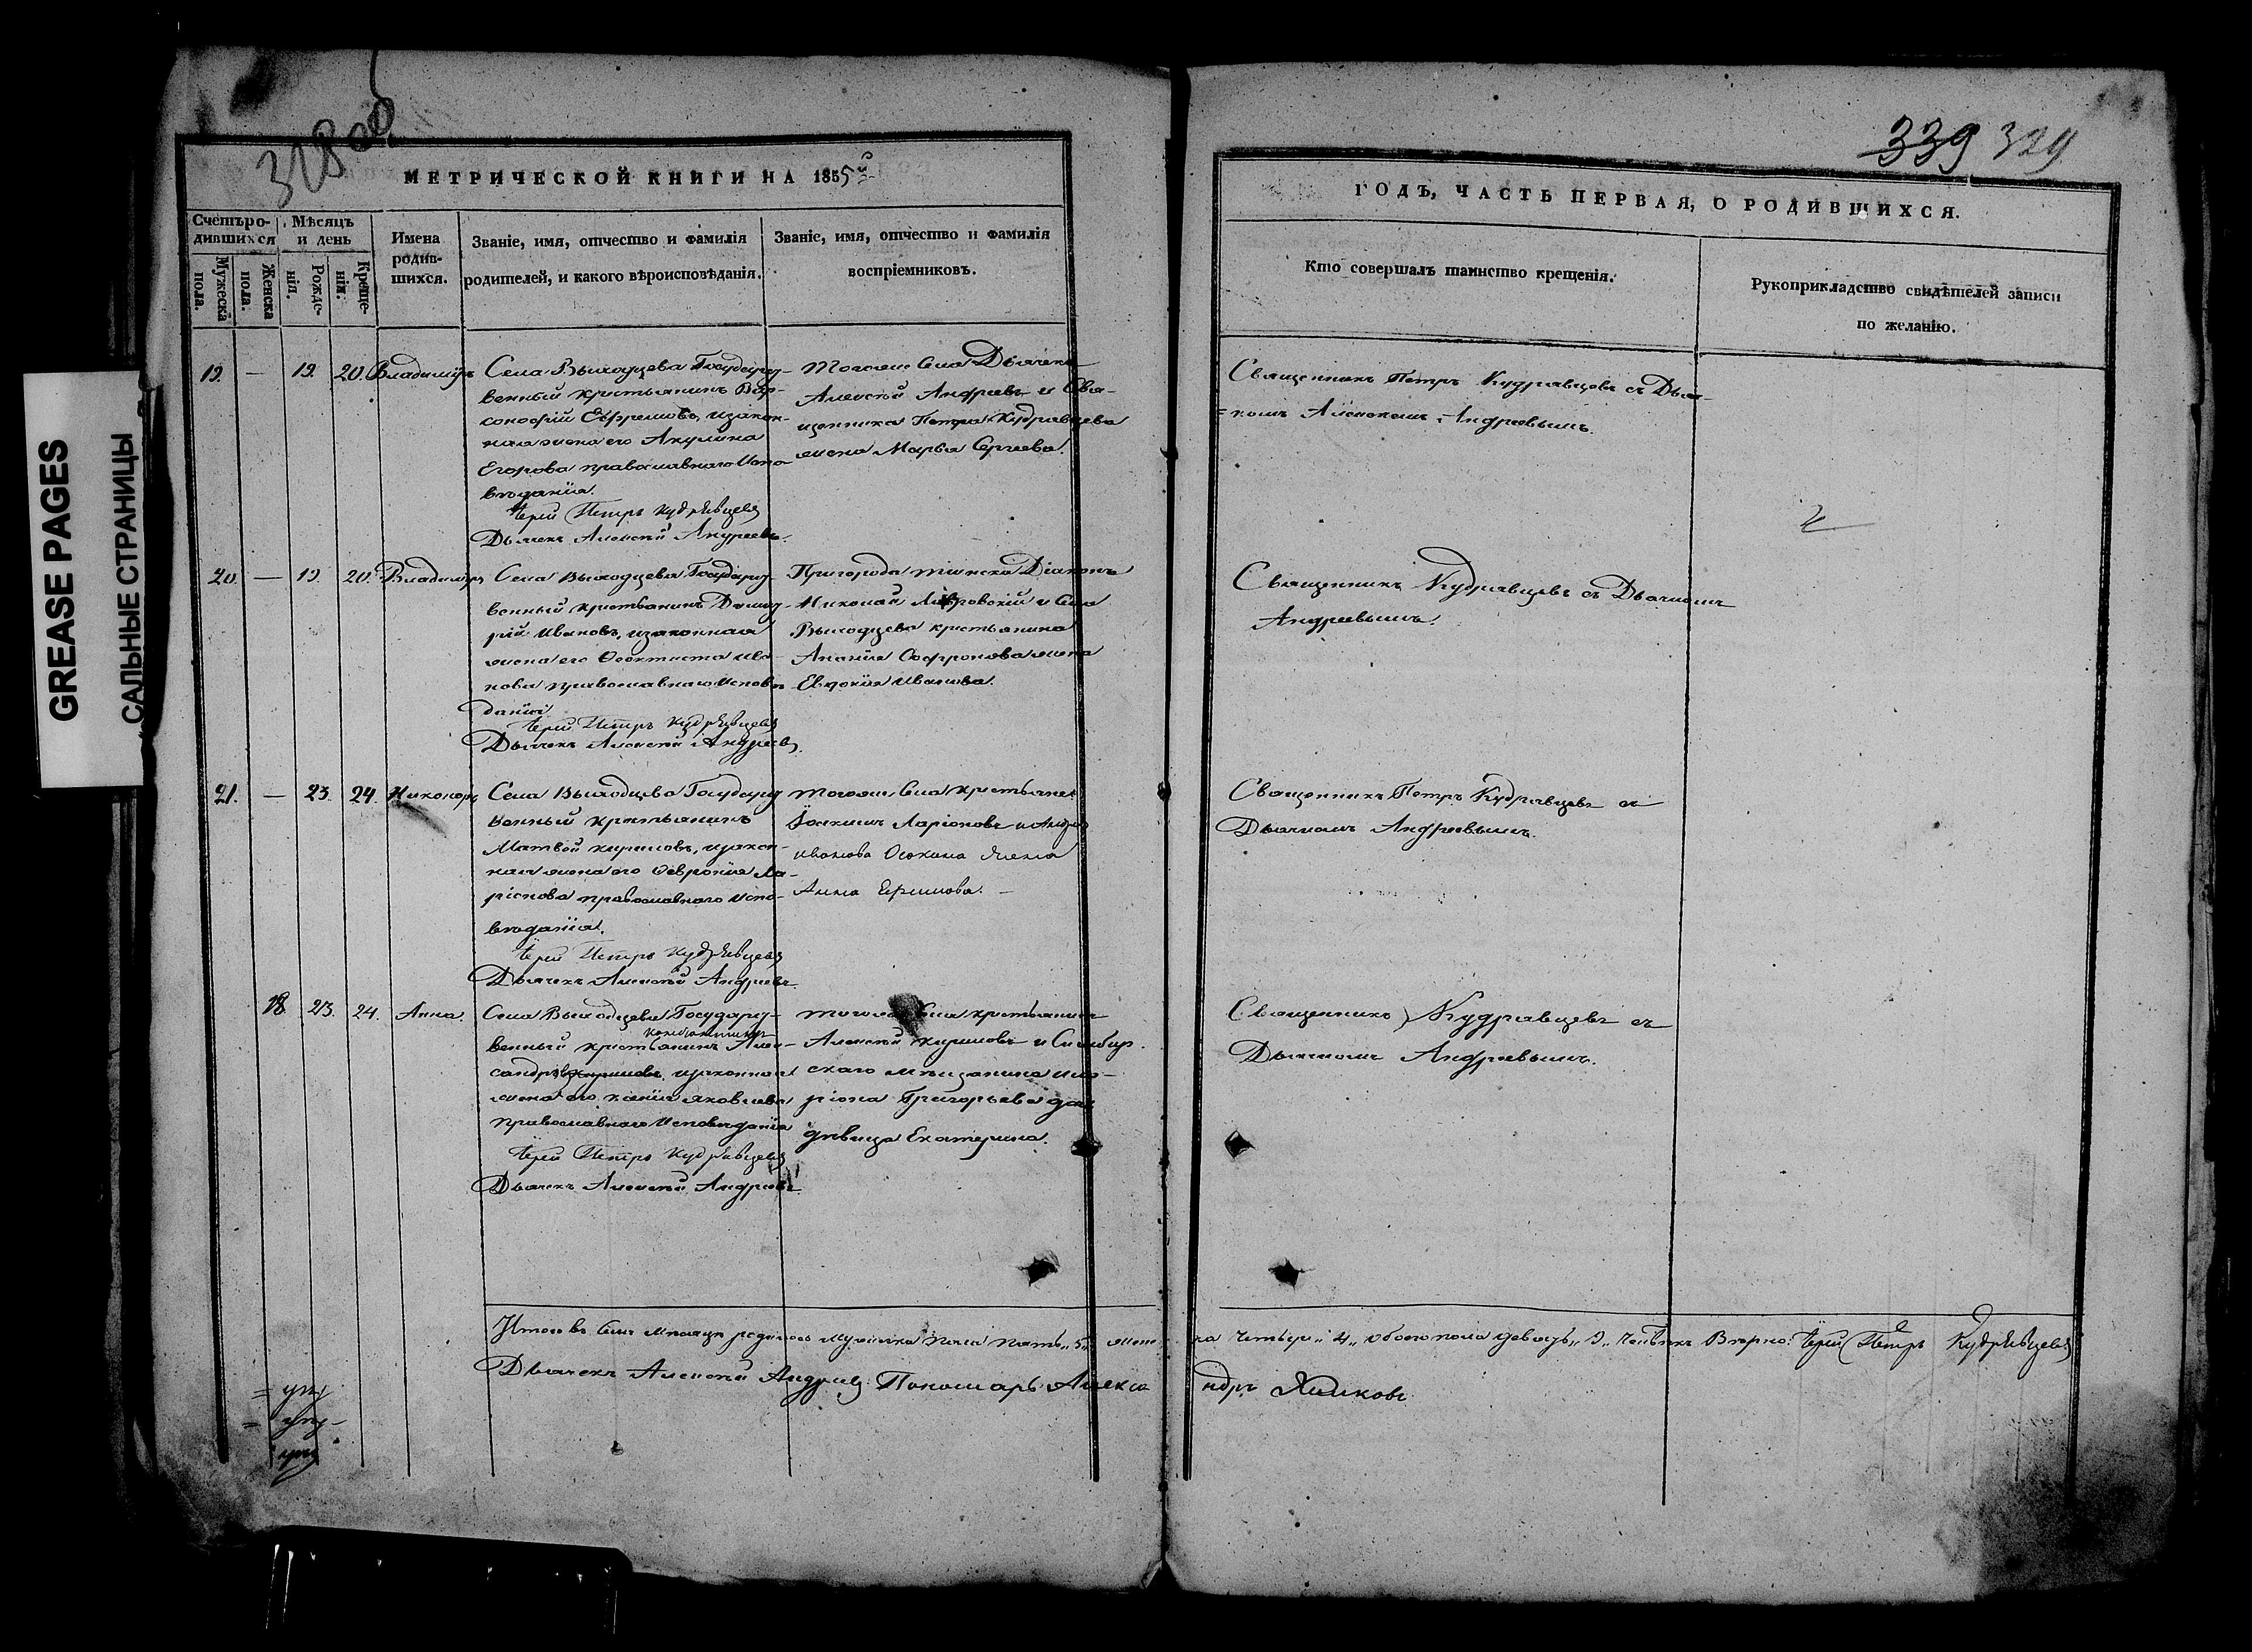 GREASE PAGES
САЛЬНЫЕ СТРАНИЦЫ
339 329
МЕТРИЧЕСКОЙ КНИГИ НА 1855й
Счетъ родившихся
Мужеска пола.
Женска пола.
Мѣсяцъ и день
Рожденія.
Крещенія.
Имена родившихся.
Званіе, имя, отчество и фамилія
родителей, и какого вѣроисповѣданія.
Званіе, имя, отчество и фамилія
воспріемниковъ.
19. — 19. 20. Владимиръ
Села Выходцева Государст-
венный крестьянинъ Вар-
сонофій Ефремовъ, изакон-
ная жена его Акулина
Егорова православнаго Испо-
вѣданія.
Іерей Петръ Кудрявцевъ
Дьячекъ Алексѣй Андреевъ.
Тогоже Села Дьячекъ
Алексѣй Андреевъ и Свя-
щенника Петра Кудрявцева
жена Марья Сергеева.
20. — 19. 20. Владимиръ
Села Выходцева Государст-
венный крестьянинъ Димит-
рій Ивановъ, изаконная
жена его Феоктиста Ива-
нова православнаго Исповѣ
данія.
Іерей Петръ Кудрявцевъ
Дьячекъ Алексѣй Андреевъ.
Пригорода Тіинска Діаконъ
Николай Лавровскій и Села
Выходцева крестьянина
Ананія Софронова жена
Евдокія Иванова.
21. — 23. 24. Никоноръ
Села Выходцева Государст
венный крестьянинъ
Матвей Кириловъ, изакон-
ная жена его Февронія Ла-
ріонова православнаго Испо-
вѣданія.
Іерей Петръ Кудрявцевъ
Дьячекъ Алексѣй Андреевъ.
Тогоже Села крестьяне
Іоакимъ Ларіоновъ и Андрея
Иванова Осокина жена
Анна Ефимова. —
18 23. 24. Анна.
Села Выходцева Государст-
венный крестьянинъ Алек-
сандръ изаконная
жена его Ксенія Яковлева
православнаго Исповѣданія
Іерей Петръ Кудрявцевъ
Дьячекъ Алексѣй Андреевъ
Тогоже Села крестьянинъ
Алексѣй Кириловъ и Симбир-
скаго мѣщанина Ила-
ріона Григорьева дочь
дѣвица Екатерина.
Итого въ семъ мѣсяцѣ родилось мужеска пола пять „5„ жен-
Дьячекъ Алексѣй Андреевъ Пономарь Алекса
ГОДЪ, ЧАСТЬ ПЕРВАЯ, О РОДИВШИХСЯ.
Кто совершалъ таинство крещенія.
Рукоприкладство свидѣтелей записи
по желанію.
Священникъ Петръ Кудрявцевъ съ Дьяч-
=комъ Алексѣемъ Андреевымъ.
Священникъ Кудрявцевъ съ Дьячкомъ
Андреевымъ.
Священникъ Петръ Кудрявцевъ съ
Дьячкомъ Андреевымъ.
Священникъ Кудрявцевъ съ
Дьячкомъ Андреевымъ.
ска четыре „4„ обоего пола девять „9„ человѣкъ Вѣрно: Іерей Петръ Кудрявцевъ
ндръ